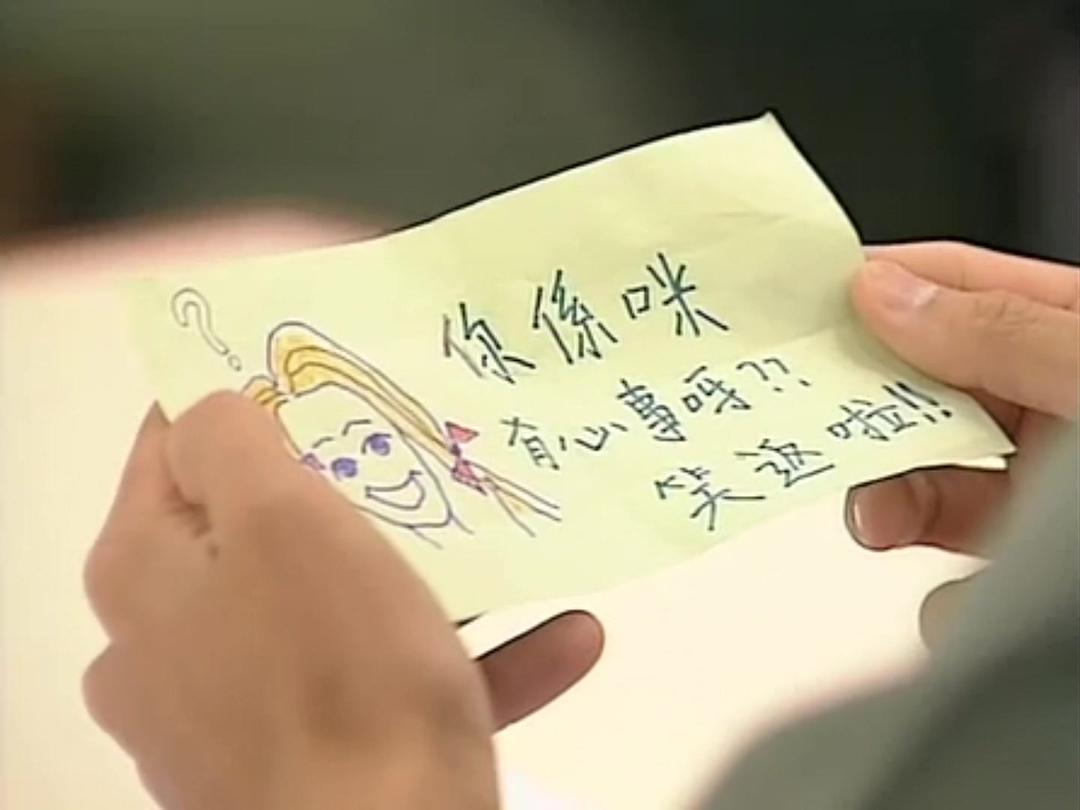 ?
你係咪
有心事呀??
笑返啦!!